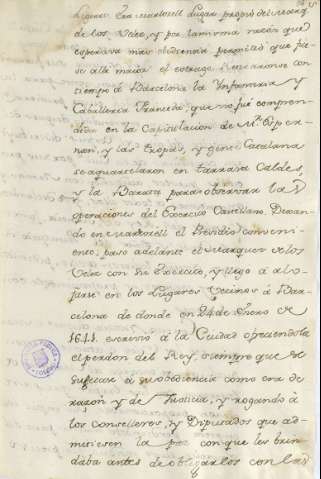 lugar. Era Martorell Lugar propio del Marq.
de los Velez, y por la misma razon que
esperava mas obediencia permitió que fue
se alli maior el estrago. Retiraronse con
tiempo á Barcelona la Ynfanteria y
Cavalleria Francesa, que no fué compren
dida en la Capitulacion de Mr. Esper
non, y las tropas, y gente Catalana
se aquartelaron en Tarrasa Caldes,
y la Garriga para observar las
operaciones del Exercito Castellano. Dexan
do en Martorell el Presidio conveni
ente, paso adelante el Marques de los
Velez con su Exercito, y llego á alo
jarse en los Lugares Vecinos á Bar
celona de donde en 24 de Enero de
1641. escrivió á la Ciudad ofreciendola
el perdon del Rey, siempre que se
sugetase á su obediencia como era de
razon y de Justicia, y rogando á
los conselleres, y Diputados que ad
mitiesen la paz con que les brin
daba antes de obligarlos con las